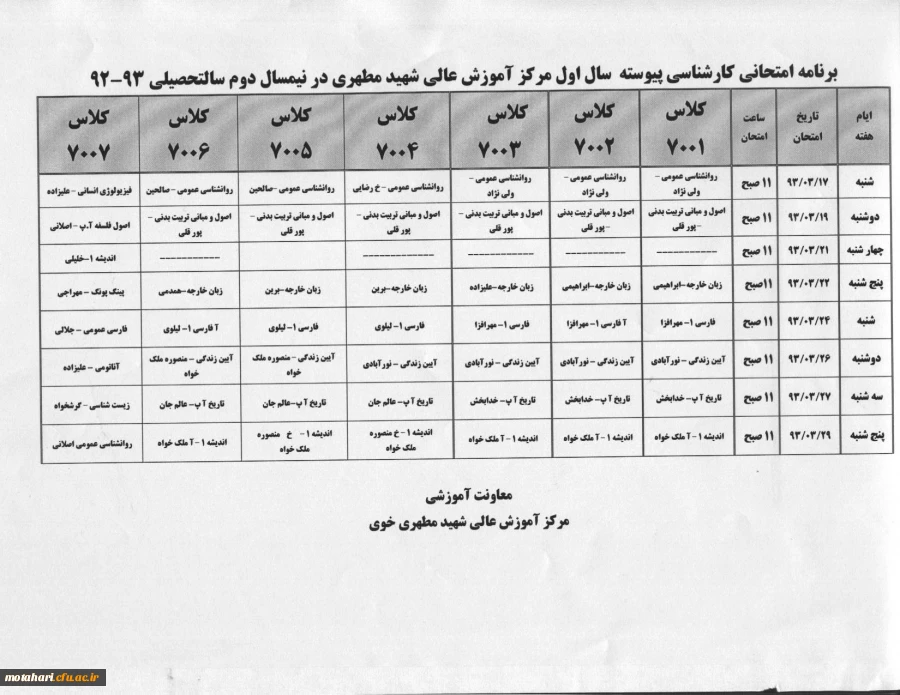 برنامه امتحانی کارشناسی پیوسته سال اول مرکز آموزش عالی شهید مطهری در نیمسال دوم سالتحصیلی ۹۳-۹۲
ایام هفته | تاریخ امتحان | ساعت امتحان | کلاس ۷۰۰۱ | کلاس ۷۰۰۲ | کلاس ۷۰۰۳ | کلاس ۷۰۰۴ | کلاس ۷۰۰۵ | کلاس ۷۰۰۶ | کلاس ۷۰۰۷
شنبه | ۹۳/۰۳/۱۷ | ۱۱ صبح | روانشناسی عمومی - ولی نژاد | روانشناسی عمومی - ولی نژاد | روانشناسی عمومی - ولی نژاد | روانشناسی عمومی - خ رضایی | روانشناسی عمومی -صالحین | روانشناسی عمومی -صالحین | فیزیولوژی انسانی - علیزاده
دوشنبه | ۹۳/۰۳/۱۹ | ۱۱ صبح | اصول و مبانی تربیت بدنی -پور قلی | اصول و مبانی تربیت بدنی -پور قلی | اصول و مبانی تربیت بدنی - پور قلی | اصول و مبانی تربیت بدنی - پور قلی | اصول و مبانی تربیت بدنی - پور قلی | اصول و مبانی تربیت بدنی - پور قلی | اصول فلسفه آ.پ - اصلانی
چهار شنبه | ۹۳/۰۳/۲۱ | ۱۱ صبح | ----------- | ----------- | ------------ | ------------- | | ----------- | اندیشه ۱-خلیلی
پنج شنبه | ۹۳/۰۳/۲۲ | ۱۱صبح | زبان خارجه-ابراهیمی | زبان خارجه-ابراهیمی | زبان خارجه-علیزاده | زبان خارجه-برین | زبان خارجه-برین | زبان خارجه-همدمی | پینگ پونگ - مهراجی
شنبه | ۹۳/۰۳/۲۴ | ۱۱ صبح | فارسی ۱- مهرافزا | آ فارسی ۱- مهرافزا | فارسی ۱- مهرافزا | فارسی ۱- لیلوی | فارسی ۱- لیلوی | آ فارسی ۱- لیلوی | فارسی عمومی - جلالی
دوشنبه | ۹۳/۰۳/۲۶ | ۱۱ صبح | آیین زندگی - نورآبادی | آیین زندگی - نورآبادی | آیین زندگی - نورآبادی | آیین زندگی - نورآبادی | آیین زندگی - منصوره ملک خواه | آیین زندگی - منصوره ملک خواه | آناتومی - علیزاده
سه شنبه | ۹۳/۰۳/۲۷ | ۱۱ صبح | تاریخ آ پ- خدابخش | تاریخ آ پ- خدابخش | تاریخ آ پ- خدابخش | تاریخ آ پ- عالم جان | تاریخ آ پ-عالم جان | تاریخ آ پ- عالم جان | زیست شناسی - گرشخواه
پنج شنبه | ۹۳/۰۳/۲۹ | ۱۱ صبح | اندیشه ۱- آ ملک خواه | اندیشه ۱- آ ملک خواه | اندیشه ۱- آ ملک خواه | اندیشه ۱- خ منصوره ملک خواه | اندیشه ۱- خ منصوره ملک خواه | اندیشه ۱- آ ملک خواه | روانشناسی عمومی اصلانی
معاونت آموزشی
مرکز آموزش عالی شهید مطهری خوی
motahari.cfu.ac.ir